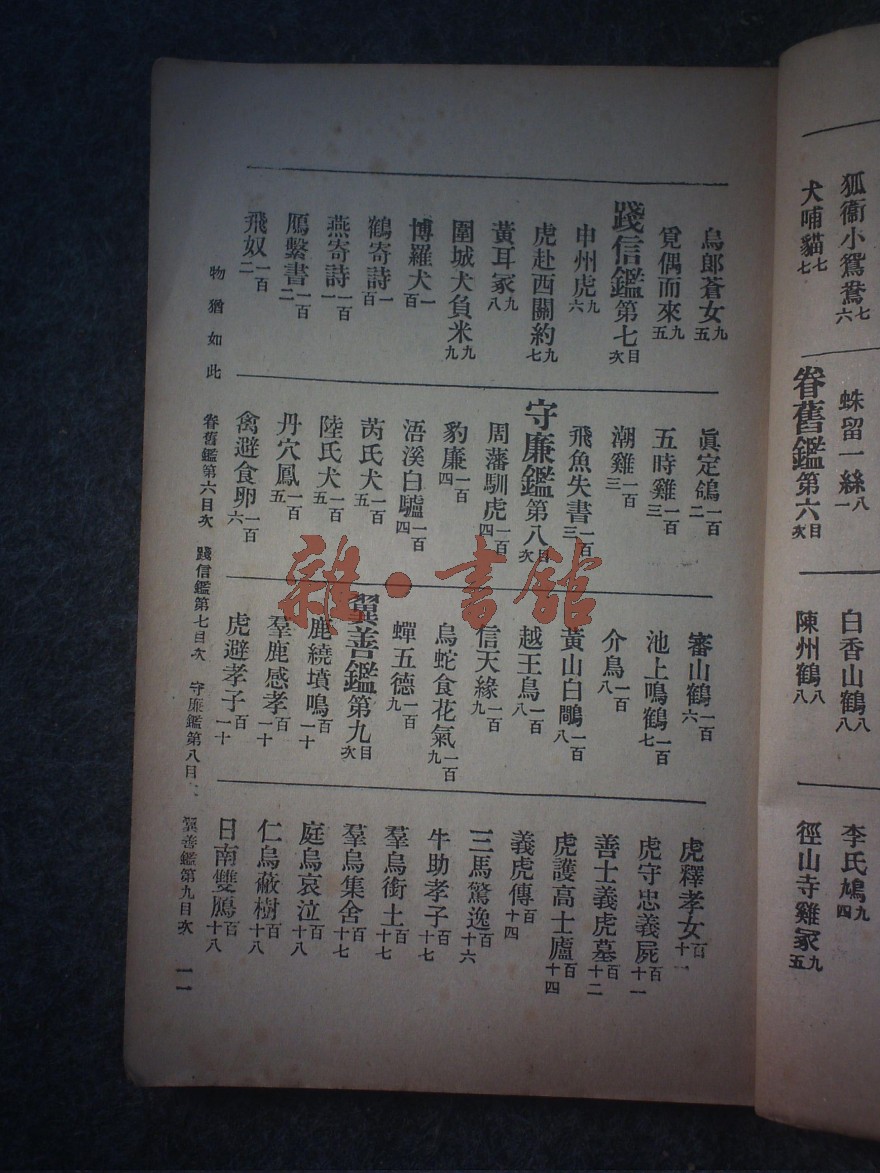 狐衞小鴛鴦七六
犬哺貓七七
蛛留一絲八一
眷舊鑑第六目次
白香山鶴八八
陳州鶴八八
李氏鳩九四
徑山寺雞冢九五
烏郎蒼女九五
覓偶而來九五
踐信鑑第七目次
申州虎九六
虎赴西關約九七
黃耳冢九八
圍城犬負米九九
博羅犬一百
鶴寄詩一百
燕寄詩一百一
鴈繫書一百二
飛奴一百二
眞定鴿一百二
五時雞一百三
潮雞一百三
飛魚失書一百三
守廉鑑第八目次
周藩馴虎一百四
豹廉一百四
浯溪白驢一百四
芮氏犬一百五
陸氏犬一百五
丹穴鳳一百五
禽避食卵一百六
審山鶴一百六
池上鳴鶴一百七
介鳥一百八
黃山白鷴一百八
越王鳥一百八
信天緣一百九
烏蛇食花氣一百九
蟬五德一百九
翼善鑑第九目次
鹿繞墳鳴百一十
羣鹿感孝百一十
虎避孝子百一十
虎釋孝女百十一
虎守忠義屍百十一
善士義虎墓百十二
虎護高士廬百十四
義虎傳百十四
三馬驚逸百十六
牛助孝子百十七
羣烏銜土百十七
羣烏集舍百十七
庭烏哀泣百十八
仁烏蔽樹百十八
日南雙鴈百十八
物猶如此 眷舊鑑第六目次 踐信鑑第七目次 守廉鑑第八目 翼善鑑第九目次 一一
雜·書館